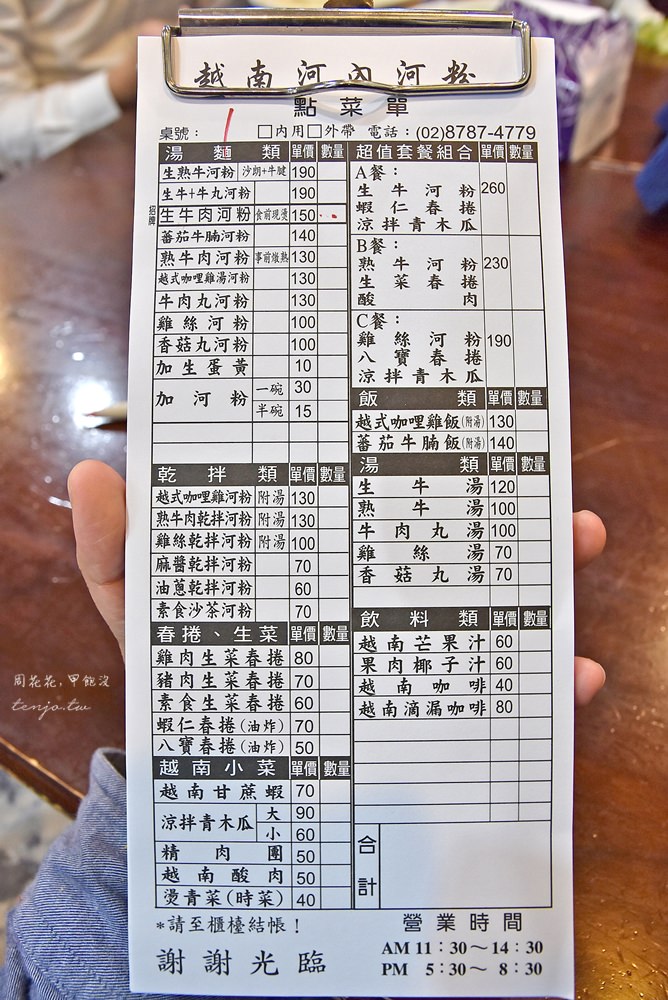 越南河內河粉
點菜單
桌號： □內用□外帶 電話：(02)8787-4779
湯麵類 單價 數量
生熟牛河粉 沙朗+牛腱 190
生牛+牛丸河粉 190
招牌 生牛肉河粉 食前現燙 150
蕃茄牛腩河粉 140
熟牛肉河粉 事前燉熟 130
越式咖哩雞湯河粉 130
牛肉丸河粉 130
雞絲河粉 100
香菇丸河粉 100
加生蛋黃 10
加河粉 一碗 30
半碗 15
乾拌類 單價 數量
越式咖哩雞河粉 附湯 130
熟牛肉乾拌河粉 附湯 130
雞絲乾拌河粉 附湯 100
麻醬乾拌河粉 70
油蔥乾拌河粉 60
素食沙茶河粉 70
春捲、生菜 單價 數量
雞肉生菜春捲 80
豬肉生菜春捲 70
素食生菜春捲 60
蝦仁春捲(油炸) 70
八寶春捲(油炸) 50
越南小菜 單價 數量
越南甘蔗蝦 70
涼拌青木瓜 大 90
小 60
精肉團 50
越南酸肉 50
燙青菜(時菜) 40
超值套餐組合 單價 數量
A餐：
生牛河粉 260
蝦仁春捲
涼拌青木瓜
B餐：
熟牛河粉 230
生菜春捲
酸肉
C餐：
雞絲河粉 190
八寶春捲
涼拌青木瓜
飯類 單價 數量
越式咖哩雞飯(附湯) 130
蕃茄牛腩飯(附湯) 140
湯類 單價 數量
生牛湯 120
熟牛湯 100
牛肉丸湯 100
雞絲湯 70
香菇丸湯 70
飲料類 單價 數量
越南芒果汁 60
果肉椰子汁 60
越南咖啡 40
越南滴漏咖啡 80
合計
*請至櫃檯結帳！
謝謝光臨
營業時間
AM 11：30～14：30
PM 5：30～8：30
周花花,甲飽沒
tenjo.tw